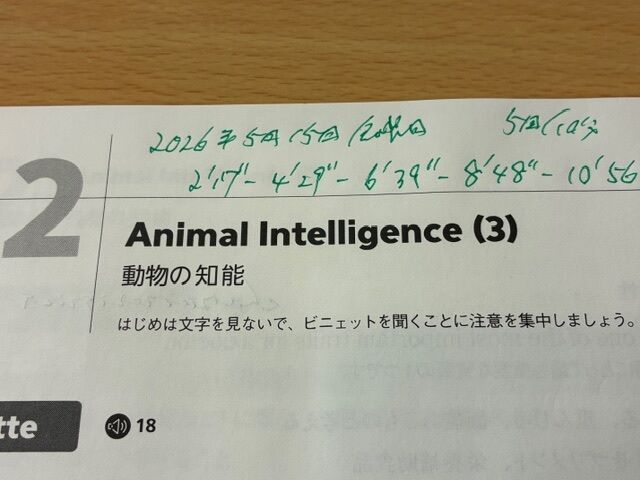 2026年5月15日 金曜日 5回
2'17" - 4'29" - 6'39" - 8'48" - 10'56
2
Animal Intelligence (3)
動物の知能
はじめは文字を見ないで、ビニェットを聞くことに注意を集中しましょう。
tte
18